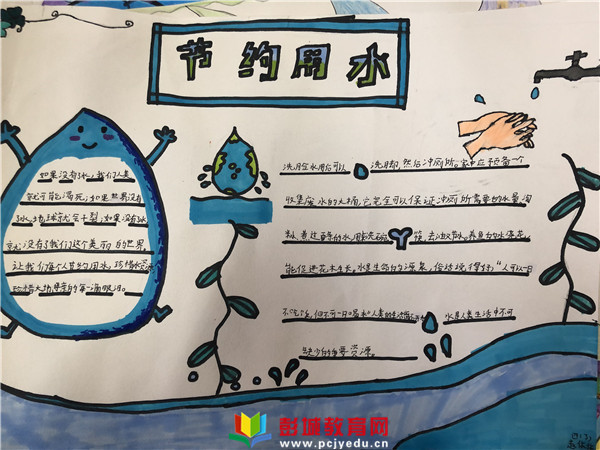 节约用水
如果没有水，我们人类
就可能渴死，如果世界没有
水，地球就会干裂，如果没有水，
就没有我们这个美丽的世界
让我们每个人节约用水，珍惜水资源
珍惜大地母亲的每一滴眼泪。
洗脸水用后可以洗脚，然后冲厕所。家中应预备一个
收集废水的水桶，它完全可以保证冲厕所需要的水量。淘
米、煮过面条的水，用来洗碗筷，去油又节水。养鱼的水浇花，
能促进花木生长。水是生命的源泉，俗话说得好："人可以一日
不吃饭，但不可一日喝水"人类的生活离不开水是人类生活中不可
缺少的重要资源。
彭城教育网
www.pcjyedu.cn